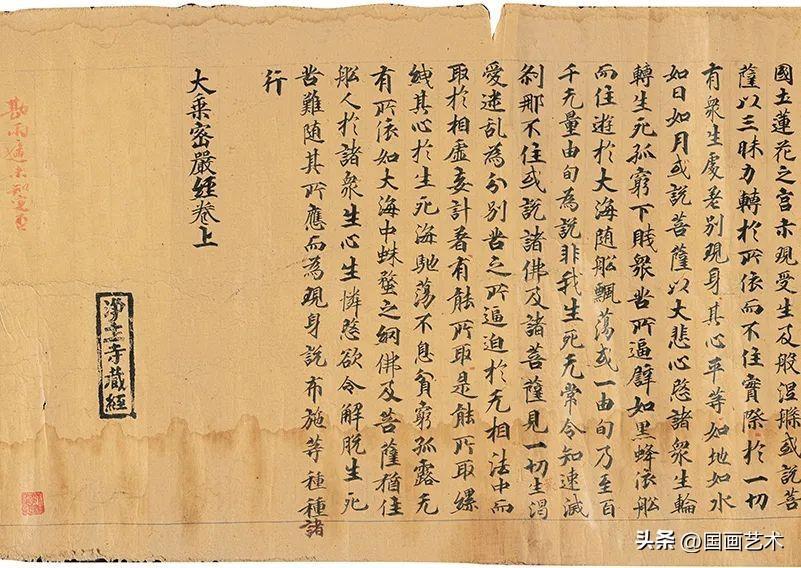 國土蓮花之宫示現受生及般涅槃或說菩
薩以三昧力轉於所依而不住實際於一切
有衆生處差別現身其心平等如地如水
如日如月或說菩薩以大悲心愍諸衆生輪
轉生死孤窮下賎衆苦所逼譬如黑蜂依舩
而住遊於大海随舩飄蕩或一由旬乃至百
千无量由旬為說非我生死无常令知速滅
刹那不住或說諸佛及諸菩薩見一切生渴
愛迷乱為分別苦之所逼迫於无相法中而
取於相虚妄計著有能所取是能所取縲
綫其心於生死海馳蕩不息貧窮孤露无
有所依如大海中蛛蝥之網佛及菩薩猶住
舩人於諸衆生心生憐愍欲令解脫生死
苦難随其所應而為現身說布施等種種諸
行
大乘密嚴經卷上
淨土寺藏經
勘兩遍
头条 @国画艺术